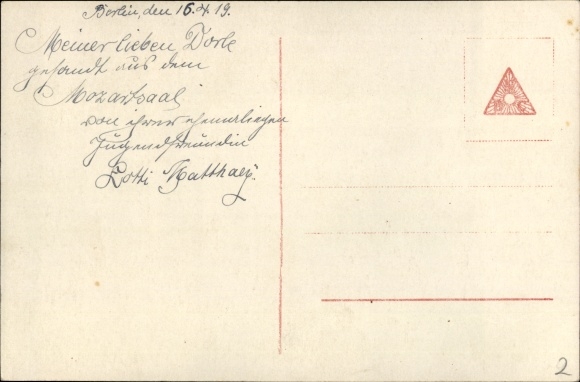 Berlin, den 16.4.19.
Meiner lieben Dorle
gesandt aus dem
Mozartsaal
von ihrer ehemaligen
Jugendfreundin
Lotti Matthaey.
2